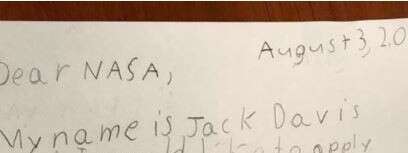 August 3, 20
Dear NASA,
My name is Jack Davis
to apply